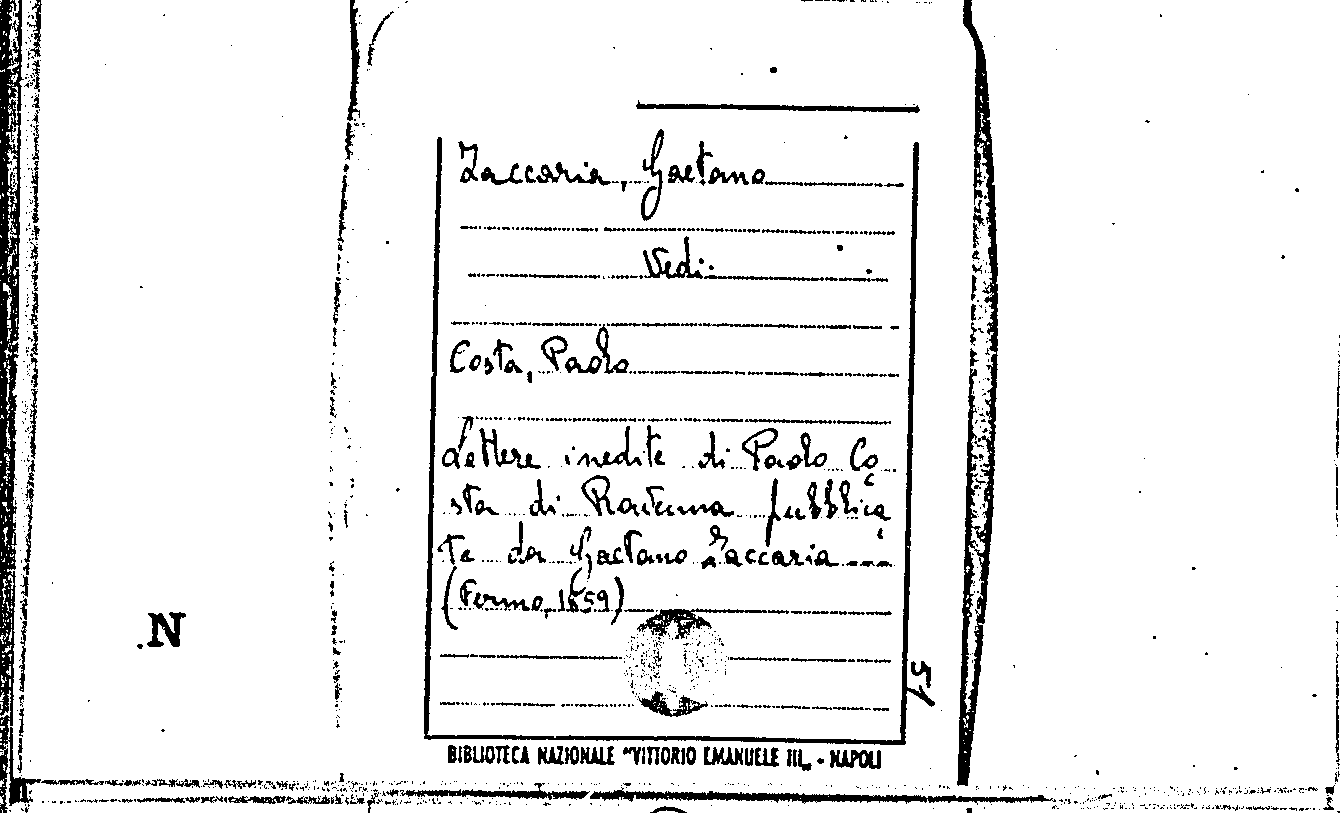 Zaccaria, Gaetano
Vedi:
Costa, Paolo
Lettere inedite di Paolo Co
sta di Ravenna pubblica
te da Gaetano Zaccaria ---
(Fermo, 1859)
N
51
BIBLIOTECA NAZIONALE "VITTORIO EMANUELE III„ - NAPOLI